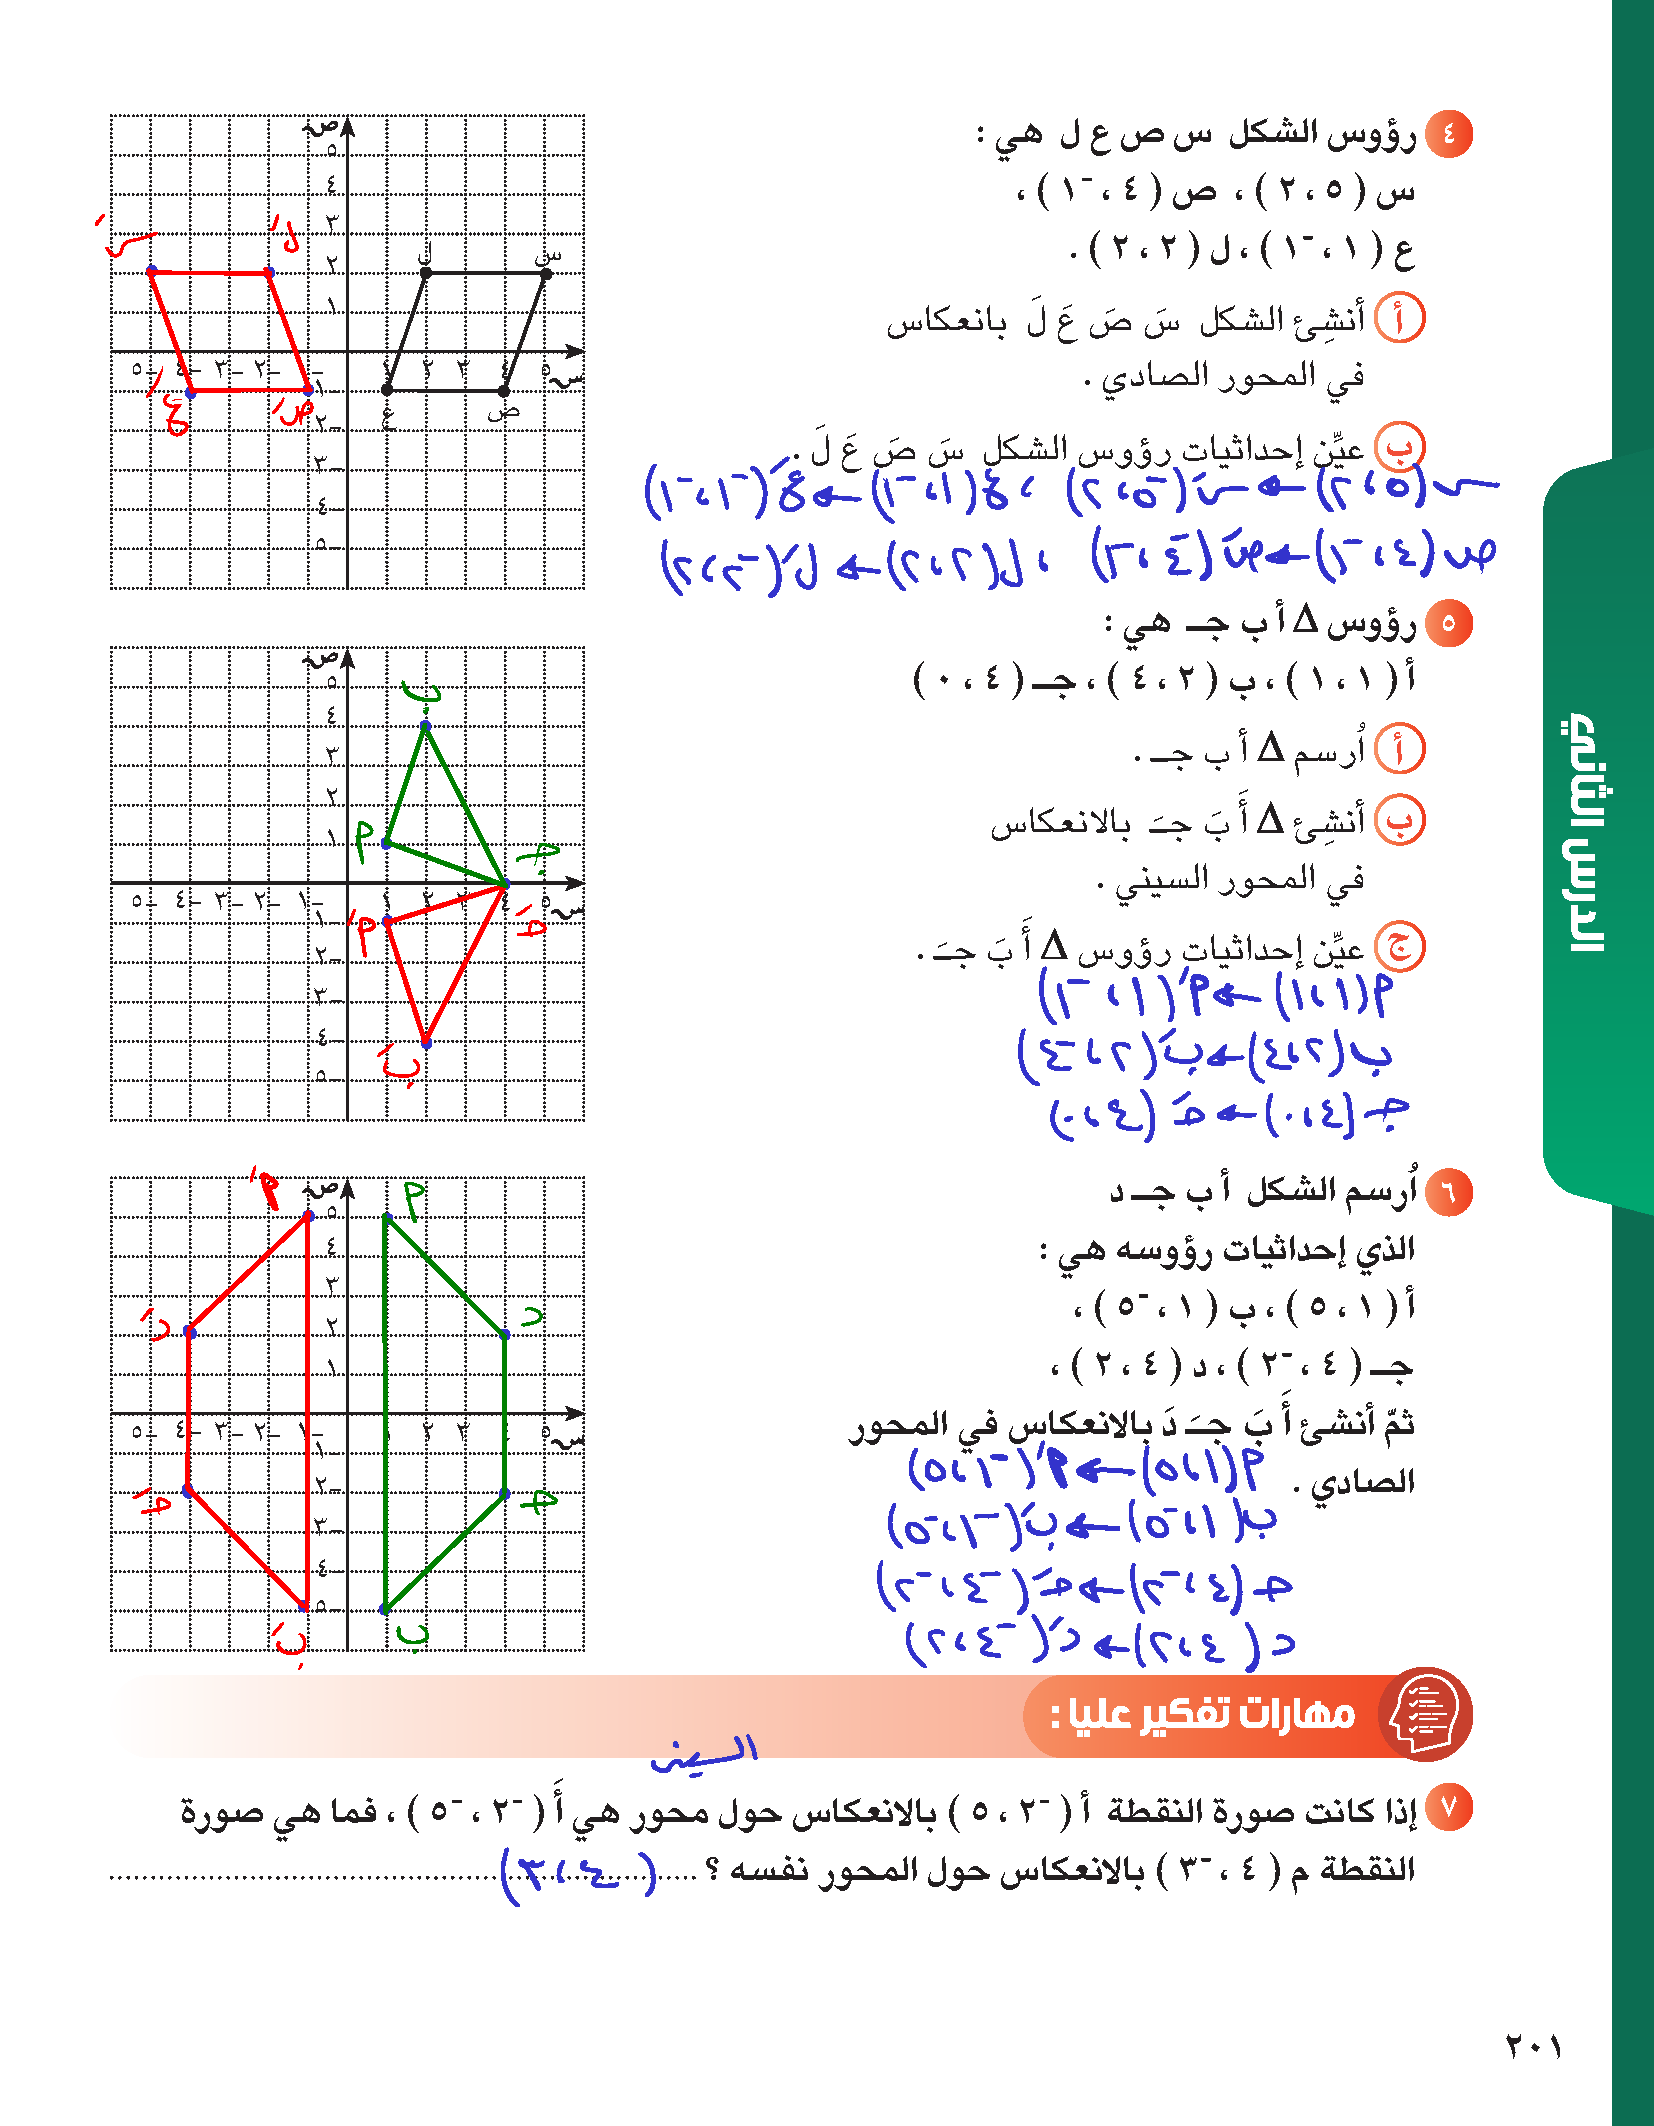 ٤ رؤوس الشكل س ص ع ل هي :
س ( ٥ ، ٢ ) ، ص ( ٤ ، ⁻١ ) ،
ع ( ١ ، ⁻١ ) ، ل ( ٢ ، ٢ ) .
أ أنشِئ الشكل سَ صَ عَ لَ بانعكاس
في المحور الصادي .
ب عيِّن إحداثيات رؤوس الشكل سَ صَ عَ لَ .
س (٥ ، ٢) ← سَ (⁻٥ ، ٢) ، ع (١ ، ⁻١) ← عَ (⁻١ ، ⁻١)
ص (٤ ، ⁻١) ← صَ (⁻٤ ، ⁻١) ، ل (٢ ، ٢) ← لَ (⁻٢ ، ٢)
٥ رؤوس Δ أ ب جـ هي :
أ ( ١ ، ١ ) ، ب ( ٢ ، ٤ ) ، جـ ( ٤ ، ٠ )
أ اُرسم Δ أ ب جـ .
ب أنشِئ Δ أَ بَ جـَ بالانعكاس
في المحور السيني .
ج عيِّن إحداثيات رؤوس Δ أَ بَ جـَ .
أ (١ ، ١) ← أَ (١ ، ⁻١)
ب (٢ ، ٤) ← بَ (٢ ، ⁻٤)
جـ (٤ ، ٠) ← جـَ (٤ ، ٠)
٦ اُرسم الشكل أ ب جـ د
الذي إحداثيات رؤوسه هي :
أ ( ١ ، ٥ ) ، ب ( ١ ، ⁻٥ ) ،
جـ ( ٤ ، ⁻٢ ) ، د ( ٤ ، ٢ ) ،
ثمّ أنشئ أَ بَ جـَ دَ بالانعكاس في المحور
الصادي .
أ (١ ، ٥) ← أَ (⁻١ ، ٥)
ب (١ ، ⁻٥) ← بَ (⁻١ ، ⁻٥)
جـ (٤ ، ⁻٢) ← جـَ (⁻٤ ، ⁻٢)
د (٤ ، ٢) ← دَ (⁻٤ ، ٢)
مهارات تفكير عليا :
السيني
٧ إذا كانت صورة النقطة أ ( ⁻٢ ، ٥ ) بالانعكاس حول محور هي أَ ( ⁻٢ ، ⁻٥ ) ، فما هي صورة
النقطة م ( ٤ ، ⁻٣ ) بالانعكاس حول المحور نفسه ؟ (٤ ، ٣)
الدرس الثاني
٢٠١